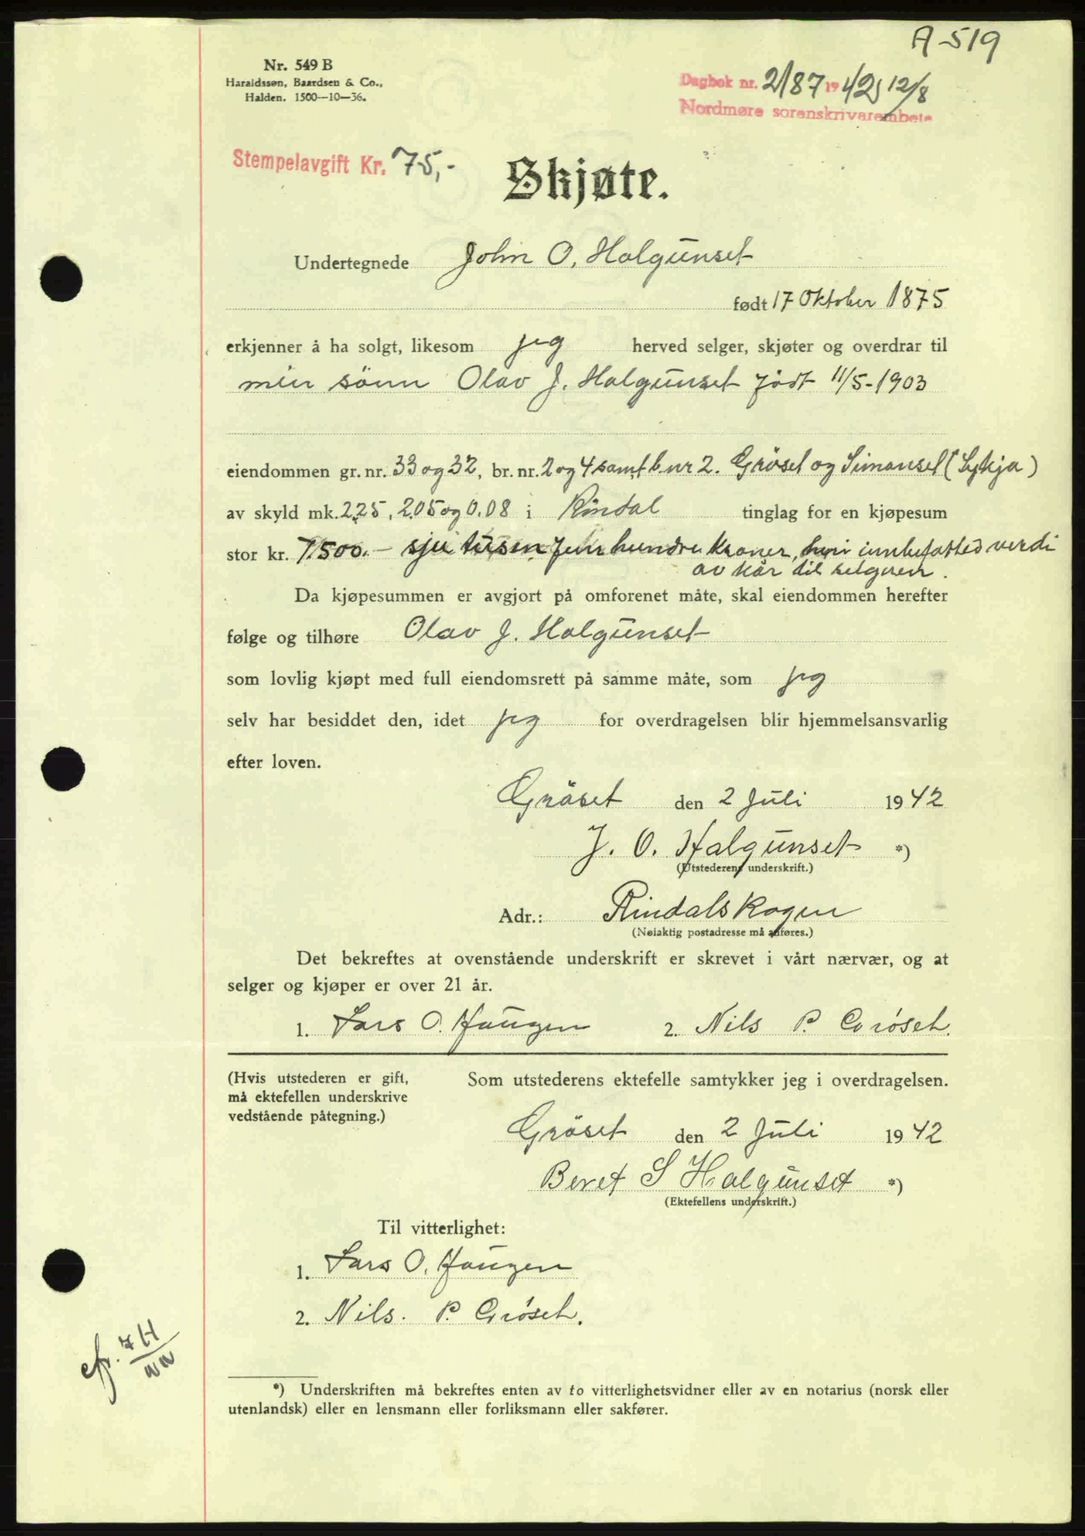 A-519
Nr. 549 B
Haraldssøn, Baardsen & Co.,
Halden. 1500—10—36.
Dagbok nr. 2187 1942 12/8
Nordmøre sorenskrivarembete
Stempelavgift Kr. 75,-
Skjøte.
Undertegnede John O. Halgunset
født 17 Oktober 1875
erkjenner å ha solgt, likesom jeg herved selger, skjøter og overdrar til
min sönn Olav J. Halgunset födt 11/5-1903
eiendommen gr. nr. 33 og 32, br. nr. 2 og 4 samt b.nr 2. Gröset og Simonset (Lykja)
av skyld mk. 2.25, 2.05 og 0.08 i Rindal tinglag for en kjøpesum
stor kr. 7.500.- sju tusen fem hundre kroner, heri innbefatted verdi
av kår til selgeren.
Da kjøpesummen er avgjort på omforenet måte, skal eiendommen herefter
følge og tilhøre Olav J. Halgunset
som lovlig kjøpt med full eiendomsrett på samme måte, som jeg
selv har besiddet den, idet jeg for overdragelsen blir hjemmelsansvarlig
efter loven.
Gröset den 2 Juli 1942
J. O. Halgunset *)
(Utstederens underskrift.)
Adr.: Rindalskogen
(Nøiaktig postadresse må anføres.)
Det bekreftes at ovenstående underskrift er skrevet i vårt nærvær, og at
selger og kjøper er over 21 år.
1. Lars O. Haugen 2. Nils P. Grøset.
(Hvis utstederen er gift,
må ektefellen underskrive
vedstående påtegning.)
Som utstederens ektefelle samtykker jeg i overdragelsen.
Gröset den 2 Juli 1942
Beret S Halgunset *)
(Ektefellens underskrift.)
Til vitterlighet:
1. Lars O. Haugen
2. Nils. P. Grøset.
*) Underskriften må bekreftes enten av to vitterlighetsvidner eller av en notarius (norsk eller
utenlandsk) eller en lensmann eller forliksmann eller sakfører.